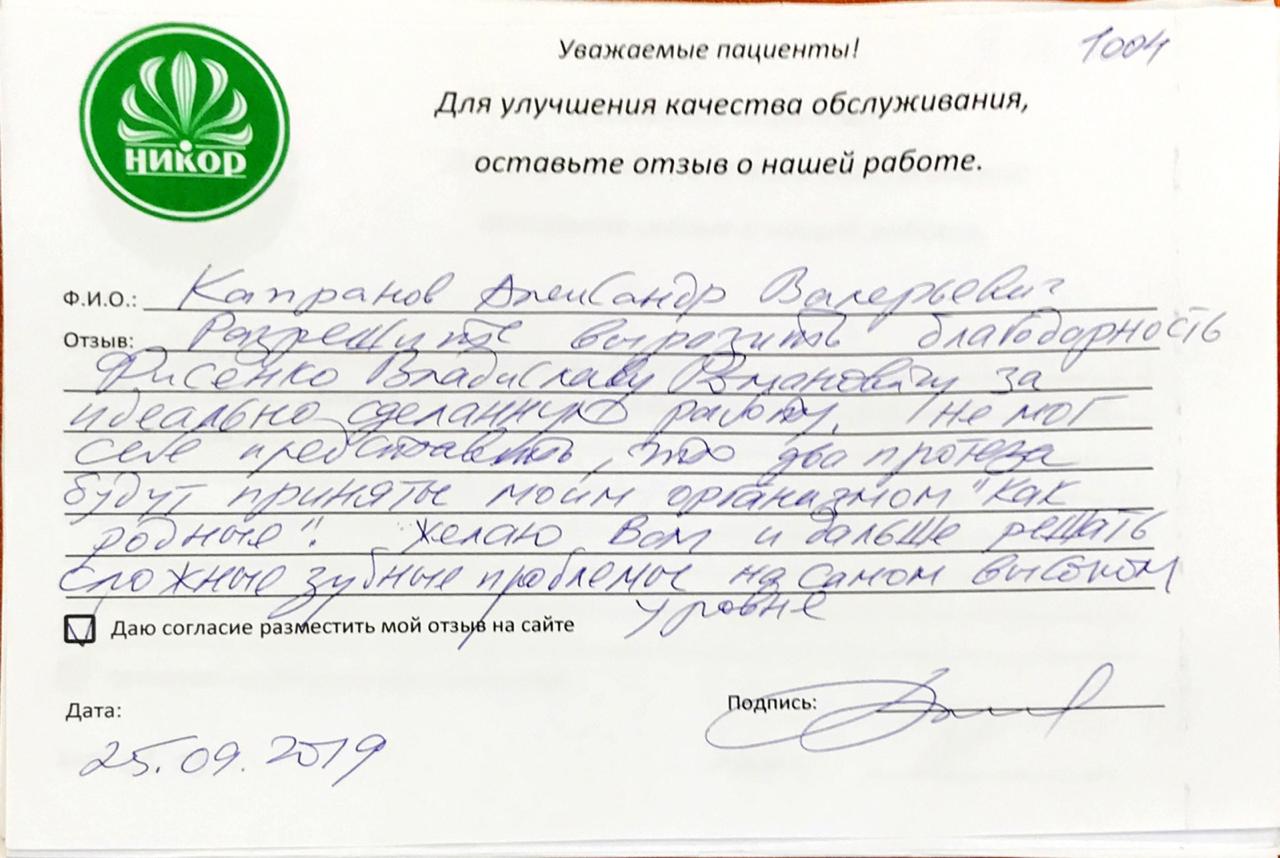 никор
Уважаемые пациенты!
1004
Для улучшения качества обслуживания,
оставьте отзыв о нашей работе.
Ф.И.О.: Капранов Александр Валерьевич
Отзыв: Разрешите выразить благодарность
Фисенко Владиславу Романовичу за
идеально сделанную работу. Не мог
себе представить, что два протеза
будут приняты моим организмом "как
родные". Желаю Вам и дальше решать
сложные зубные проблемы на самом высоком
уровне
Даю согласие разместить мой отзыв на сайте
Дата:
Подпись:
25.09.2019